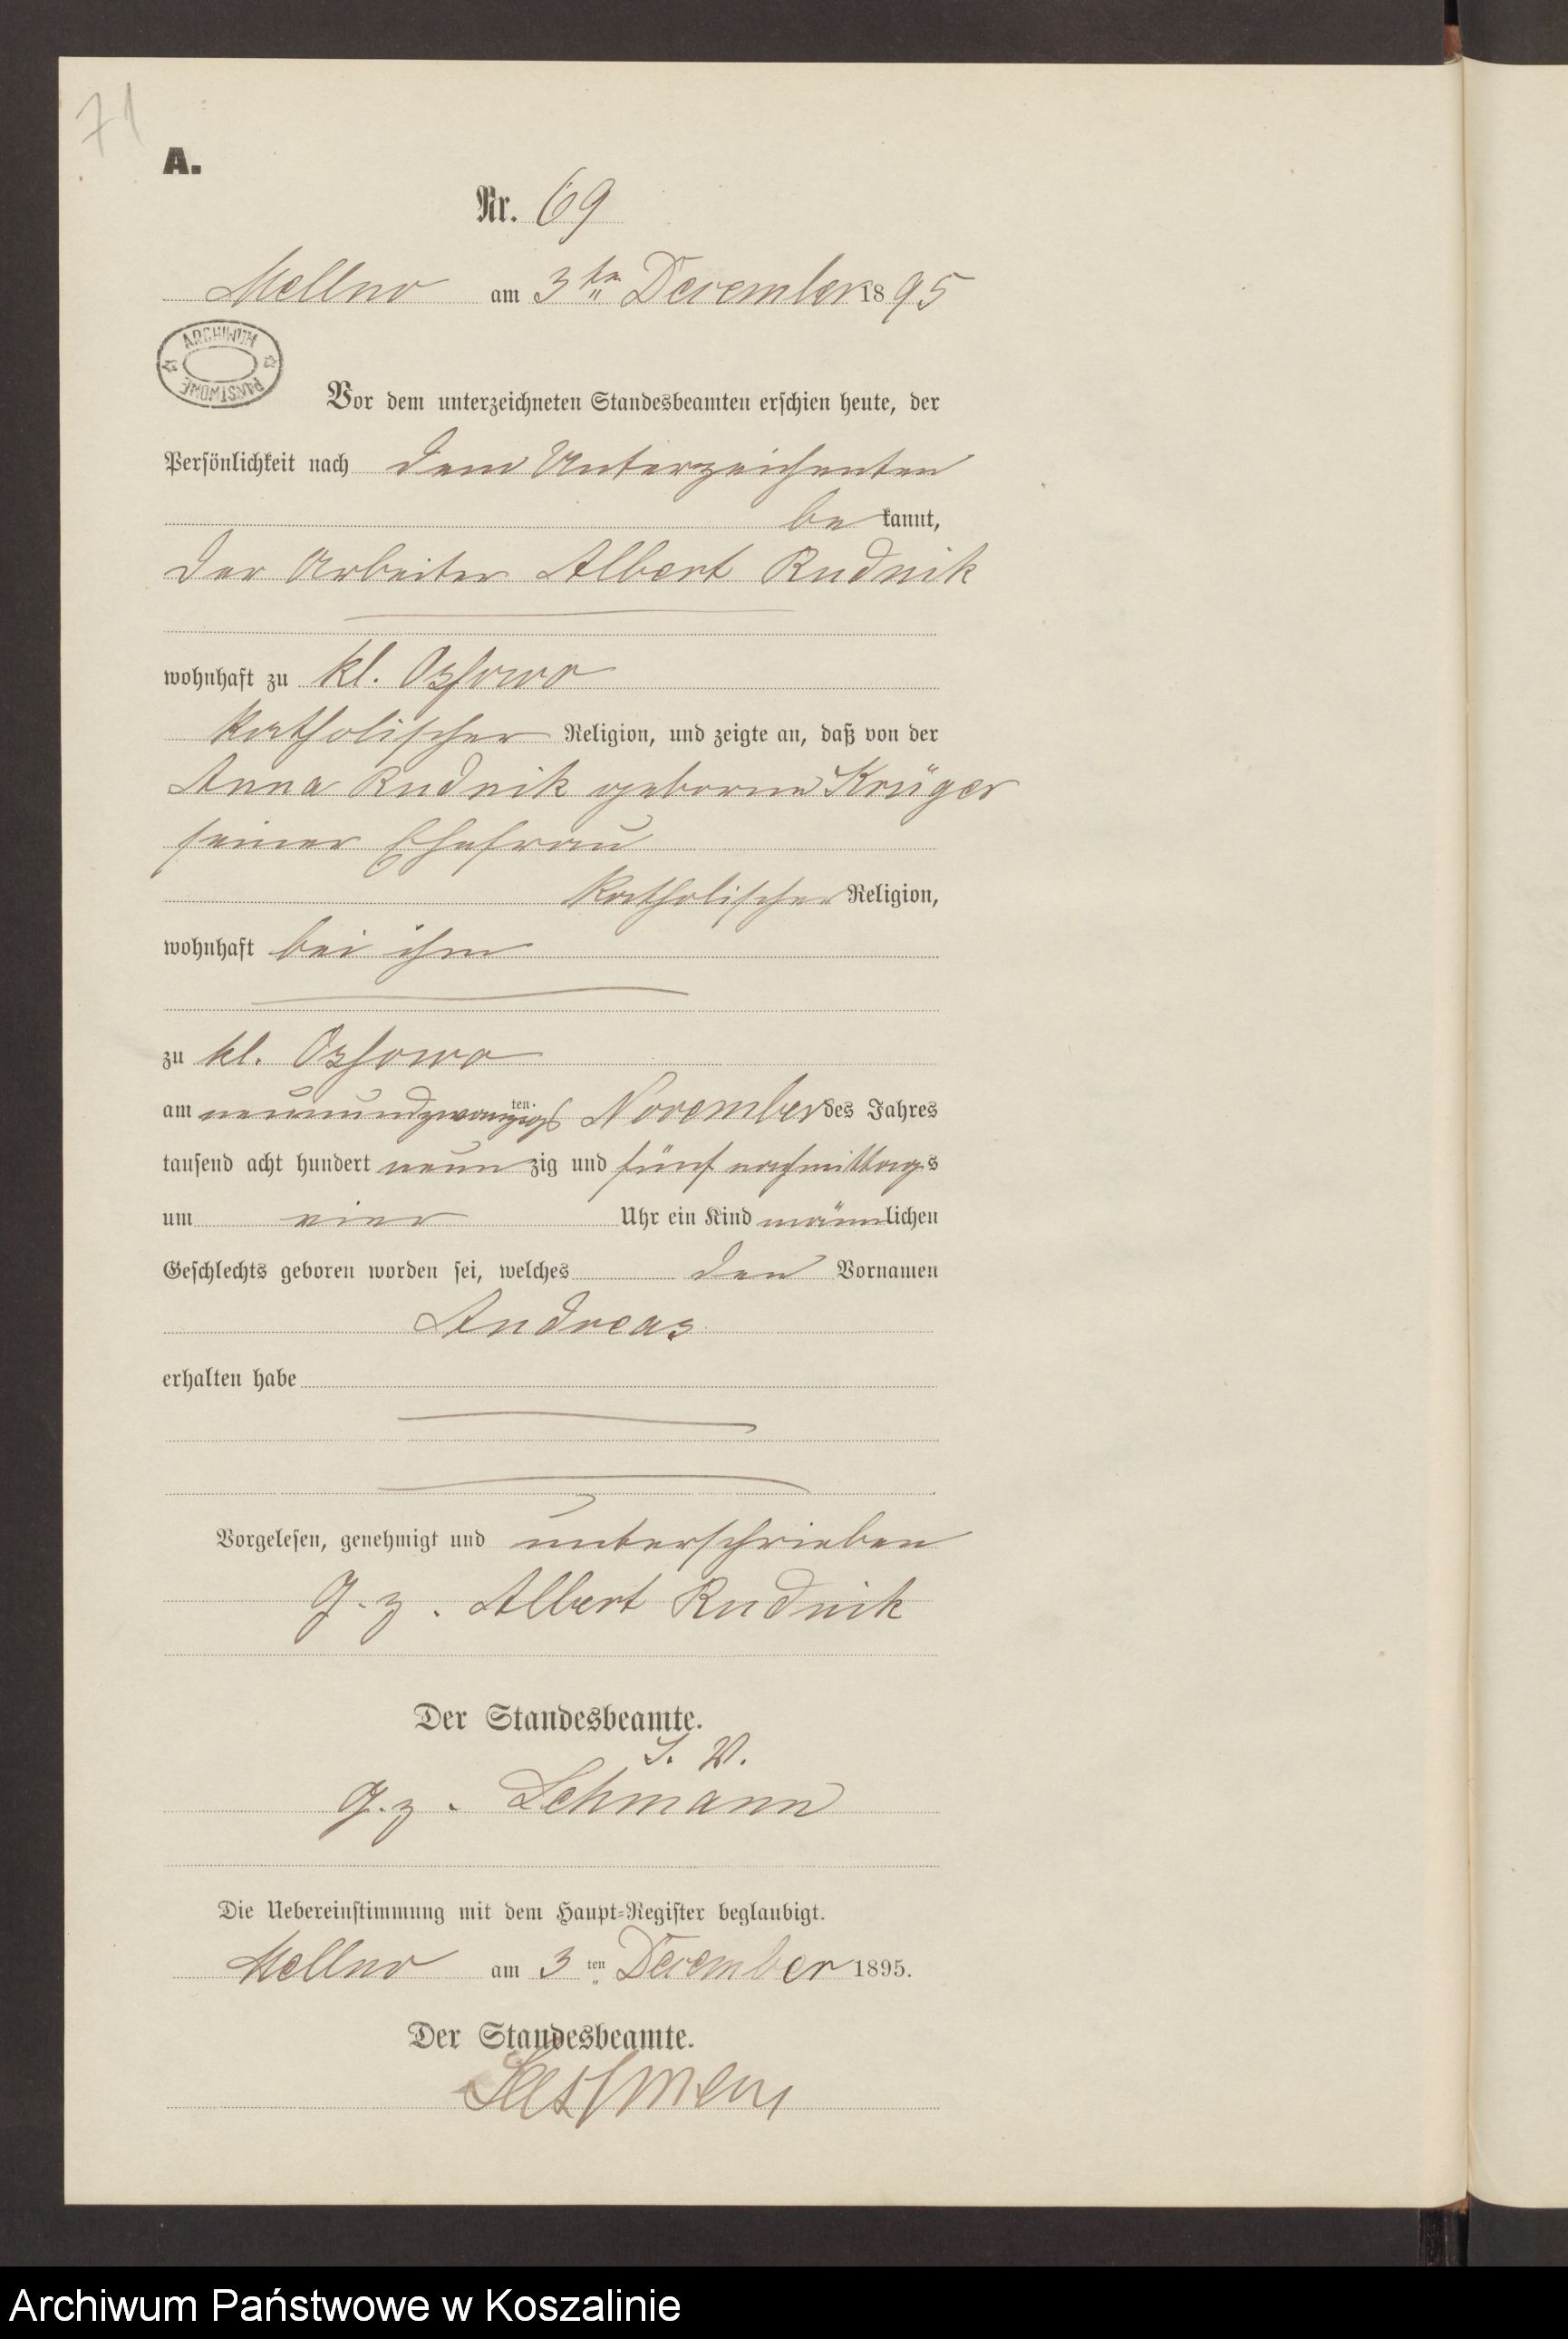 71
A.
Nr. 69
Mellno am 3ten December 1895
ARCHIWUM PAŃSTWOWE
Vor dem unterzeichneten Standesbeamten erschien heute, der
Persönlichkeit nach dem Unterzeichenten
be kannt,
der Arbeiter Albert Rudnik
wohnhaft zu Kl. Ossowo
katholischer Religion, und zeigte an, daß von der
Anna Rudnik geborne Krüger
seiner Ehefrau
katholischer Religion,
wohnhaft bei ihm
zu kl. Ossowo
am neunundzwanzigsten November des Jahres
tausend acht hundert neun zig und fünf nachmittags
um vier Uhr ein Kind männlichen
Geschlechts geboren worden sei, welches den Vornamen
Andreas
erhalten habe
Vorgelesen, genehmigt und unterschrieben
g. z. Albert Rudnik
Der Standesbeamte.
g. z. Lehmann
Die Uebereinstimmung mit dem Haupt-Register beglaubigt.
Mellno am 3ten December 1895.
Der Standesbeamte.
Archiwum Państwowe w Koszalinie